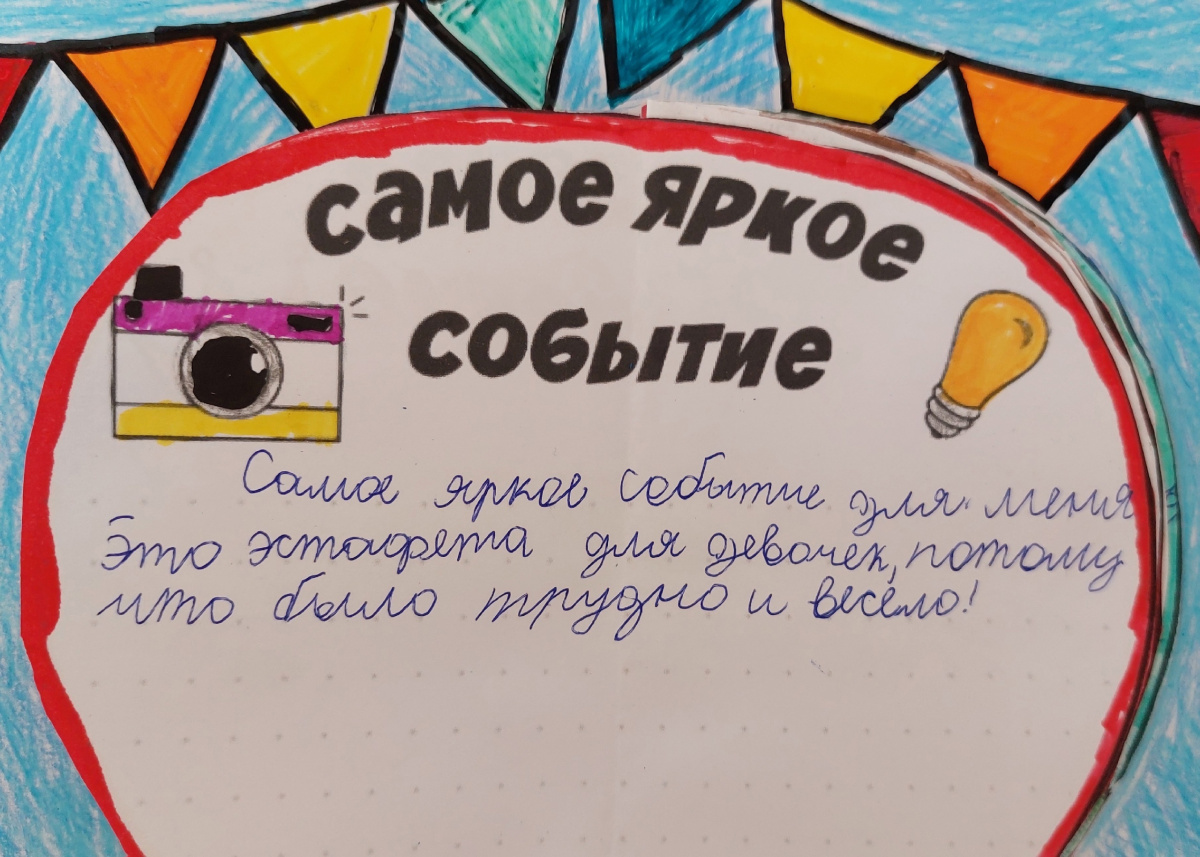 самое яркое
событие
Самое яркое событие для меня
Это эстафета для девочек, потому
что было трудно и весело!